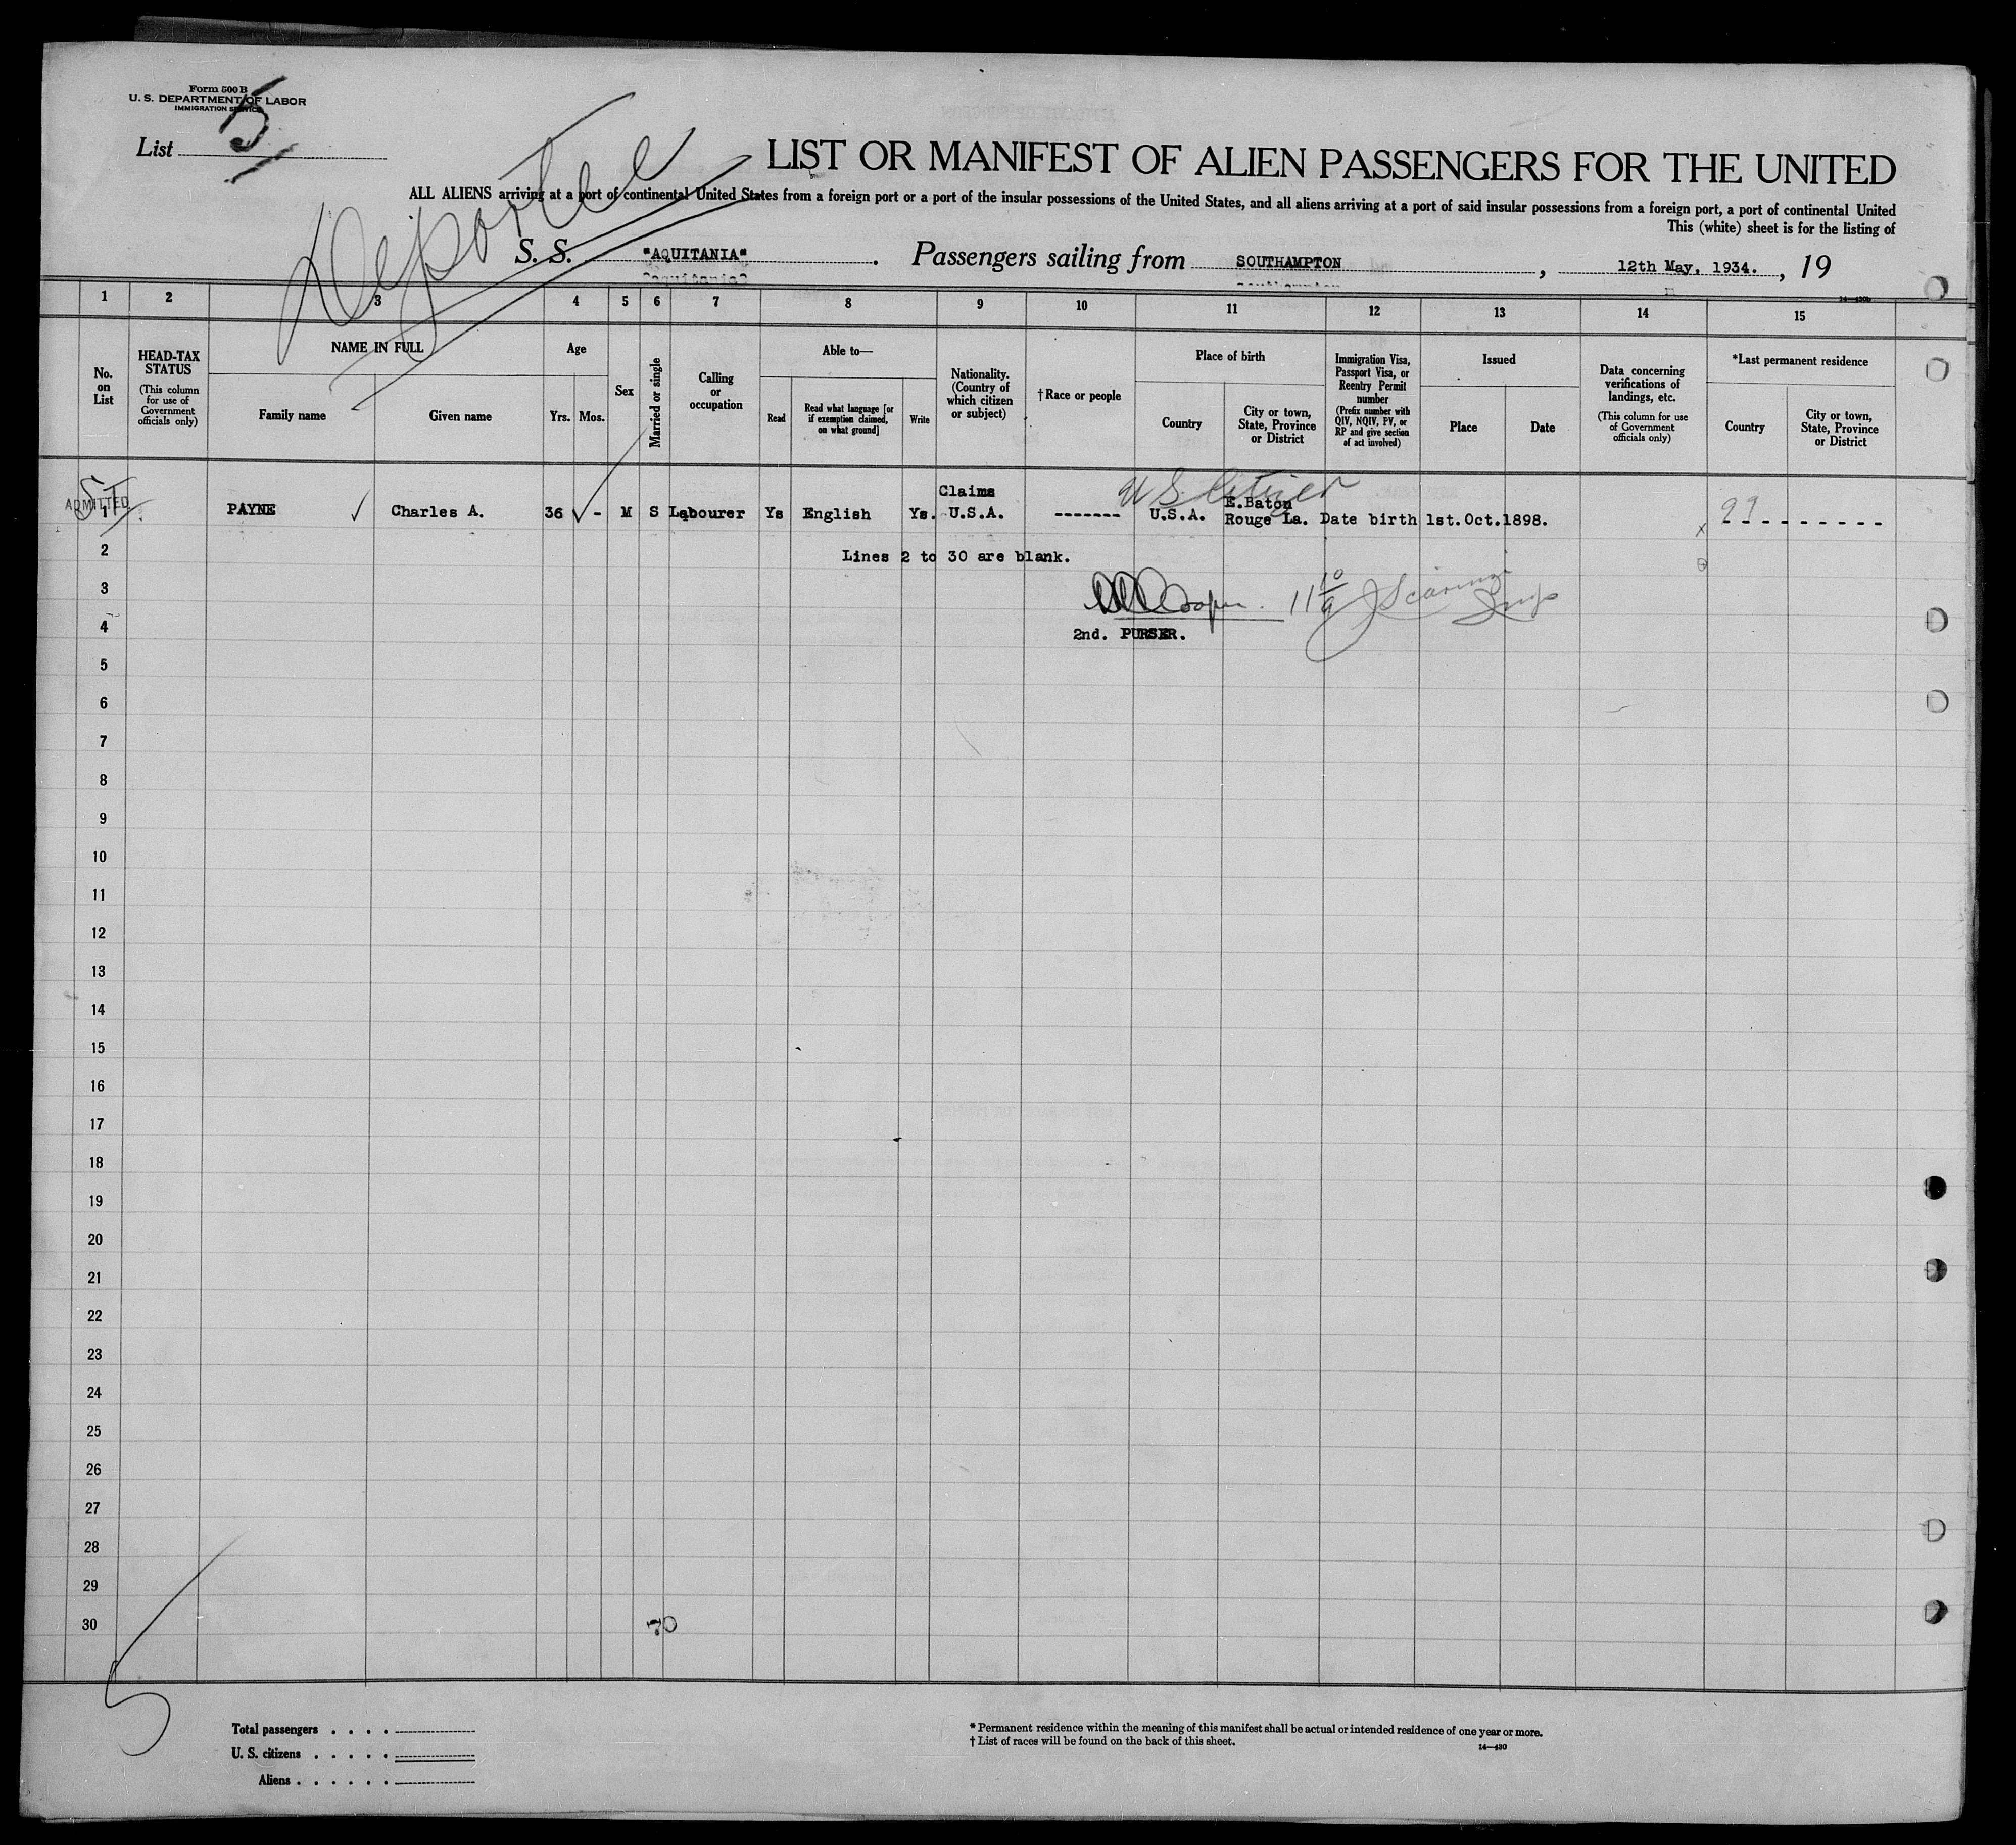 Form 500 B
U. S. DEPARTMENT OF LABOR
IMMIGRATION SERVICE
List 5
Deportee
LIST OR MANIFEST OF ALIEN PASSENGERS FOR THE UNITED
ALL ALIENS arriving at a port of continental United States from a foreign port or a port of the insular possessions of the United States, and all aliens arriving at a port of said insular possessions from a foreign port, a port of continental United
This (white) sheet is for the listing of
S. S. "AQUITANIA" . Passengers sailing from SOUTHAMPTON , 12th May, 1934. , 19
14—430b
1 2 3 4 5 6 7 8 9 10 11 12 13 14 15
No. on List
HEAD-TAX STATUS (This column for use of Government officials only)
NAME IN FULL
Family name
Given name
Age
Yrs. Mos.
Sex
Married or single
Calling or occupation
Able to—
Read
Read what language [or if exemption claimed, on what ground]
Write
Nationality. (Country of which citizen or subject)
† Race or people
Place of birth
Country
City or town, State, Province or District
Immigration Visa, Passport Visa, or Reentry Permit number (Prefix number with QIV, NQIV, PV, or RP and give section of act involved)
Issued
Place
Date
Data concerning verifications of landings, etc. (This column for use of Government officials only)
*Last permanent residence
Country
City or town, State, Province or District
U S Citizen
ADMITTED
1 PAYNE Charles A. 36 - M S Labourer Ys English Ys. Claims U.S.A. ------- U.S.A. E.Baton Rouge La. Date birth 1st.Oct.1898. 99 ---------
2 Lines 2 to 30 are blank.
3 Cooper.
4 2nd. PURSER.
5
6
7
8
9
10
11
12
13
14
15
16
17
18
19
20
21
22
23
24
25
26
27
28
29
30
70
5
Total passengers . . . .
U. S. citizens . . . . .
Aliens . . . . . .
* Permanent residence within the meaning of this manifest shall be actual or intended residence of one year or more.
† List of races will be found on the back of this sheet.
14—430